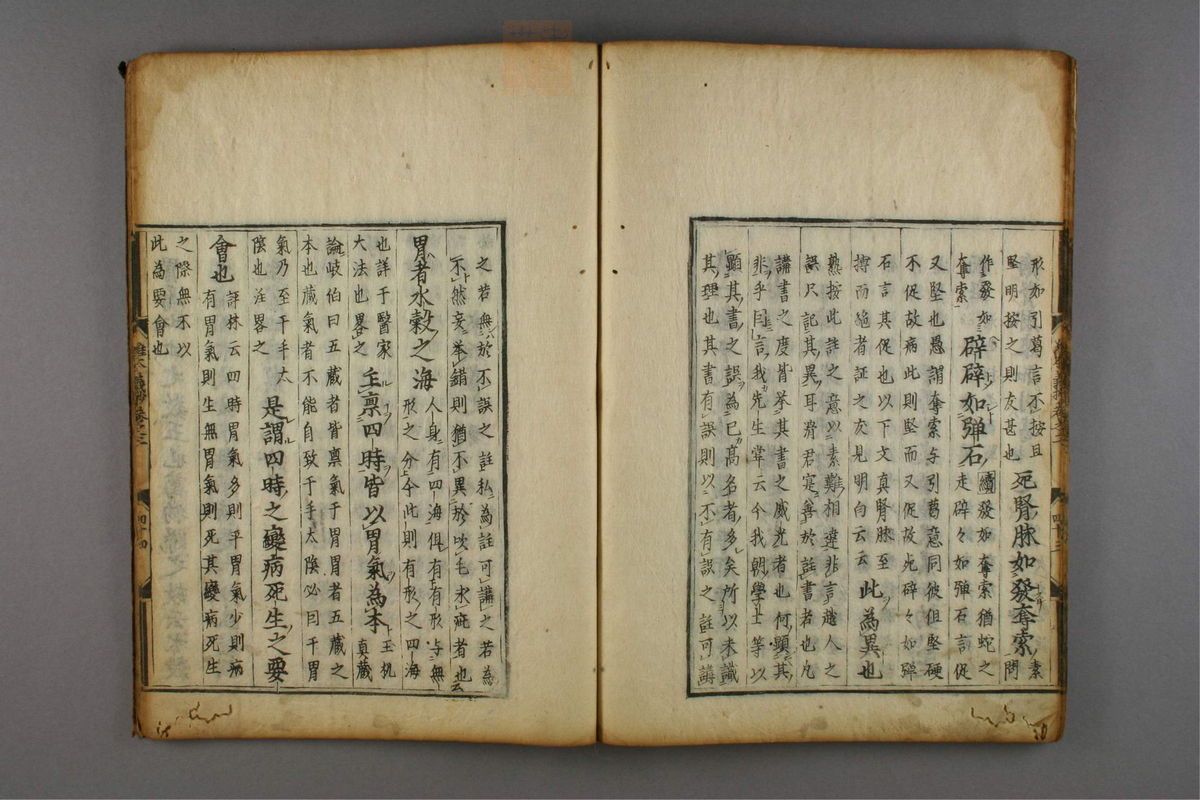 形如引葛言不按且
堅明按之則友甚也
死腎脉如發奪索
素
問
作發如
奪索
辟辟如弾石
續發如奪索猶蛇之
走辟々如弾石言促
又堅也愚謂奪索与引葛意同彼但堅硬
不促故病此則堅而又促故死辟々如弾
石言其促也以下文真腎脉至
搏而絶者証之友見明白云云
此為異也
熟按此註之意以素難相違非言越人之
誤尺記其異耳滑君寔善於註書者也凡
講書之度皆举其書之威光者也何顕其
非乎巨言我先生常云今我朝學士等以
顕其書之誤為已高名者多矣所以未識
其理也其書有誤則以不有誤之註可講
之若無於不誤之註私為註可講之若為
不然妄举錯則猶不異於吹毛求疵者也云
胃者水穀之海
人身有四海倶有有形与無
形之分今此則有形之四海
也詳于醫家
大法也畧之
主禀四時皆以胃氣為本
玉机
真藏
論岐伯曰五藏者皆禀氣于胃胃者五藏之
本也藏氣者不能自致于手太陰必曰于胃
氣乃至于手太
陰也註畧之
是謂四時之變病死生之要
會也
評林云四時胃氣多則平胃氣少則病
有胃氣則生無胃氣則死其變病死生
之際無不以
此為要會也
四十四